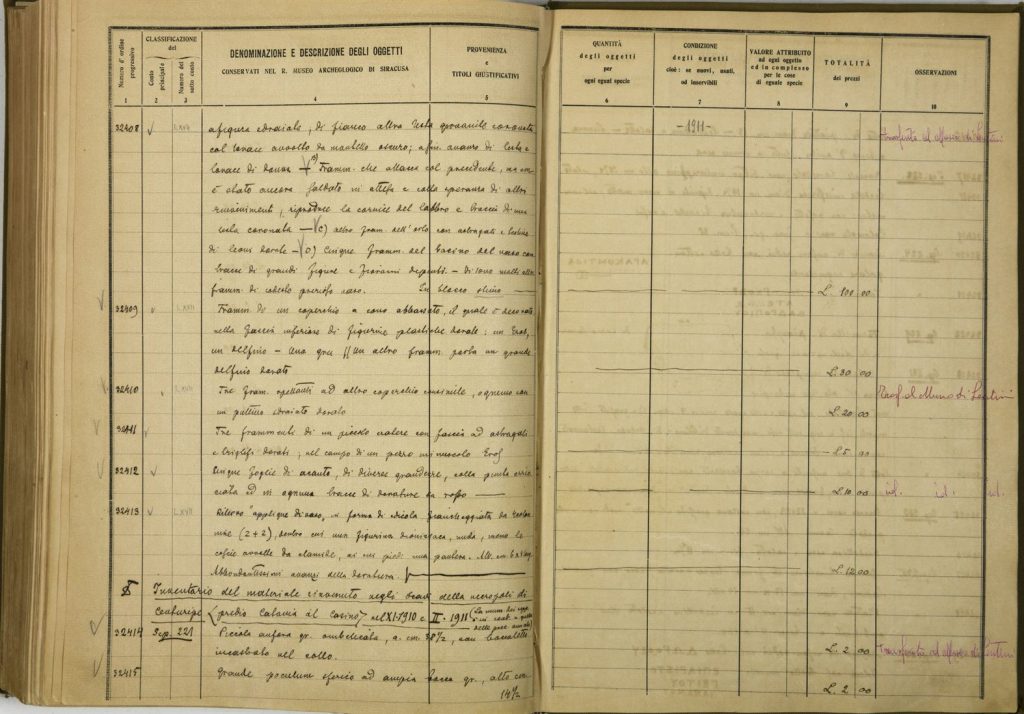 Numero d'ordine progressivo
CLASSIFICAZIONE del
Conto principale
Numero del sotto conto
DENOMINAZIONE E DESCRIZIONE DEGLI OGGETTI
CONSERVATI NEL R. MUSEO ARCHEOLOGICO DI SIRACUSA
PROVENIENZA
e
TITOLI GIUSTIFICATIVI
QUANTITÀ
degli oggetti
per
ogni egual specie
CONDIZIONE
degli oggetti
cioè: se nuovi, usati,
od inservibili
VALORE ATTRIBUITO
ad ogni oggetto
ed in complesso
per le cose
di eguale specie
TOTALITÀ
dei prezzi
OSSERVAZIONI
1 2 3 4 5 6 7 8 9 10
-1911-
32408 a figura sdraiata, di fianco altra testa giovanile coronata
col torace avvolto da mantello oscuro; avanzo di testa e
torace di donna Framm. che attacca col precedente, ma non
è stato ancora saldato in attesa e colla speranza di altri
rinvenimenti, riproduce la cornice del labbro e braccia di una
testa coronata — c) altro fram. dell'orlo con astragali e testina
di leoni dorate — D) Cinque framm. del bacino del vaso con
tracce di grandi figure e di sono molti altri
framm. di codesto prezioso vaso. In blocco L. 100 00
32409 Framm. di un coperchio a cono abbassato, il quale è decorato
nella fascia inferiore di figurine plastiche dorate: un Eros,
un delfino — Una gru || Un altro framm. porta un grande
delfino dorato L. 30 00
32410 Tre fram. spettanti ad altro coperchio consimile, ognuno con
un puttino sdraiato dorato L. 20 00
32411 Tre frammenti di un piccolo cratere con fascia ad astragali
e triglifi dorati; nel campo di un pezzo un minuscolo Eros L 5 00
32412 Cinque foglie di acanto, di diverse grandezze, colla punta
ed in ognuna tracce di dorature su rosso L. 10 00 id. id. id.
32413 L XVII Rilievo "applique di vaso", a forma di edicola fiancheggiata da
(2+2), dentro cui una figurina dionisiaca, nuda, meno le
coscie avvolte da clamide, ai cui piedi una pantera. Alt. cm.
Abbondantissimi avanzi della doratura. L. 12 00
§ Inventario del materiale rinvenuto negli scavi della necropoli di
Centuripe (predio Catania al Casino) nel XI-1910 e II-1911
32414 Sep. 221 Piccola anfora gr. ombelicata, a. cm. 38½, con boccaletto
incastrato nel collo. L. 2 00
32415 Grande poculum sferico ad ampia bocca gr., alto cm.
14½ L. 2 00
Trasferito al Museo di Lentini
Trasf. al Museo di Lentini
Trasferita al Museo di Lentini